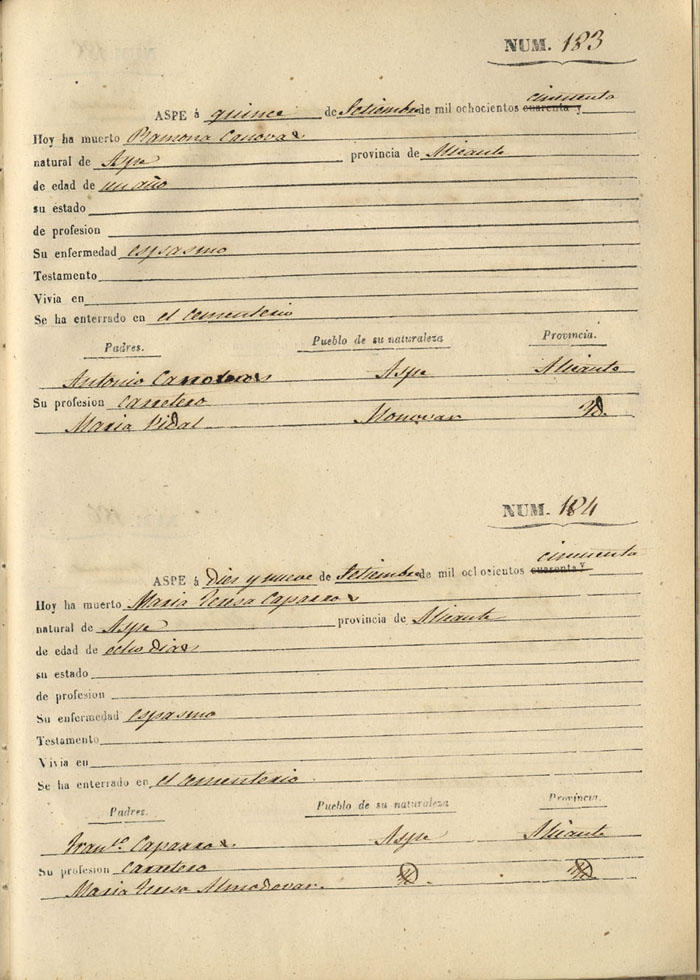 NUM. 183
cincuenta
ASPE á quince de Setiembre de mil ochocientos cuarenta y
Hoy ha muerto Ramona Canovas
natural de Aspe provincia de Alicante
de edad de un año
su estado
de profesion
Su enfermedad espasmo
Testamento
Vivia en
Se ha enterrado en el cementerio
Padres. Pueblo de su naturaleza Provincia.
Antonio Aspe Alicante
Su profesion carretero
Maria Vidal Monovar Yd.
NUM. 184
cincuenta
ASPE á Diez y nueve de Setiembre de mil ochocientos cuarenta y
Hoy ha muerto Maria Teresa Caparros
natural de Aspe provincia de Alicante
de edad de ocho dias
su estado
de profesion
Su enfermedad espasmo
Testamento
Vivia en
Se ha enterrado en el cementerio
Padres. Pueblo de su naturaleza Provincia.
Franco. Caparros. Aspe Alicante
Su profesion carretero
Maria Teresa Almodovar. Yd. Yd.